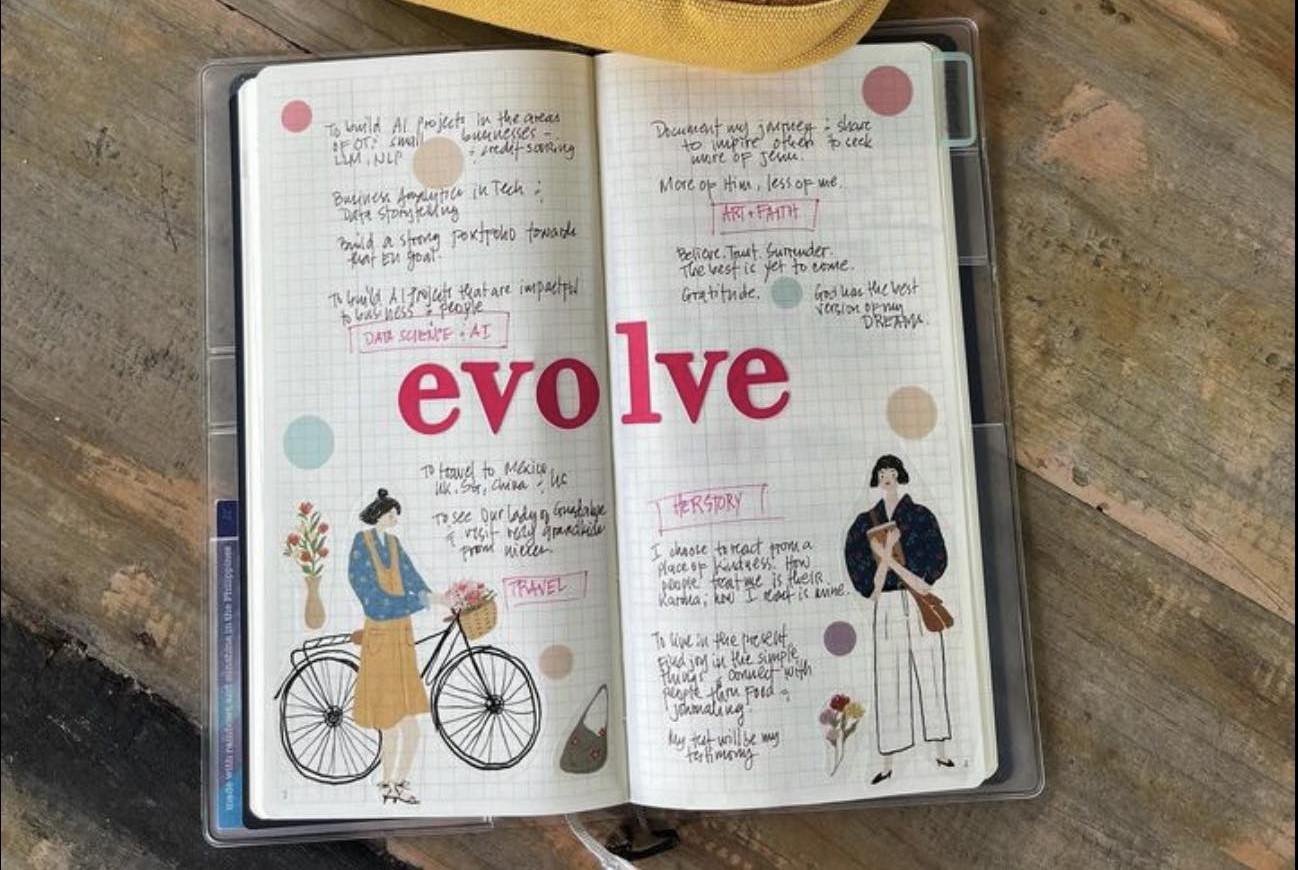 To build AI projects in the areas
OF OT: small businesses –
LLM, NLP : credit scoring
Business Analytics in Tech :
Data storytelling
Build a strong portfolio towards
that goal.
To build AI projects that are impactful
to business : people
DATA SCIENCE : AI
evolve
To travel to Mexico,
UK, SG, China :
To see Our Lady of Guadalupe
: visit my grandkids
from nieces.
TRAVEL
made with rainbows and sunshine in the Philippines
Document my journey : share
to inspire others to seek
more of Jesus.
More of Him, less of me.
ART + FAITH
Believe. Trust. Surrender.
The best is yet to come.
Gratitude.
God has the best
version of my
DREAMS.
HERSTORY
I choose to react from a
place of kindness. How
people treat me is their
Karma; how I react is mine.
To live in the present,
Find joy in the simple
things : connect with
people thru Food :
journaling.
My test will be my
testimony